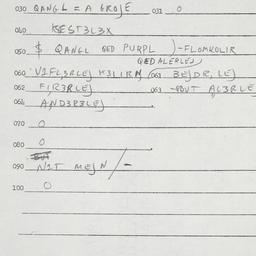 030 QANGL = A GROJE 031 O
040 KEST3L3X
050 $ QANGL QED PURPL )-FLOMKOLIR
QEDALERLEJ
060 V1FL3RLEJ K3LIRN /061 BEJDR, LEJ
062 FIR3RLEJ 063 -POUT AL3RLE
064 AND3R3LEJ
070 O
080 O
090 N1T MEJN /-
100 O